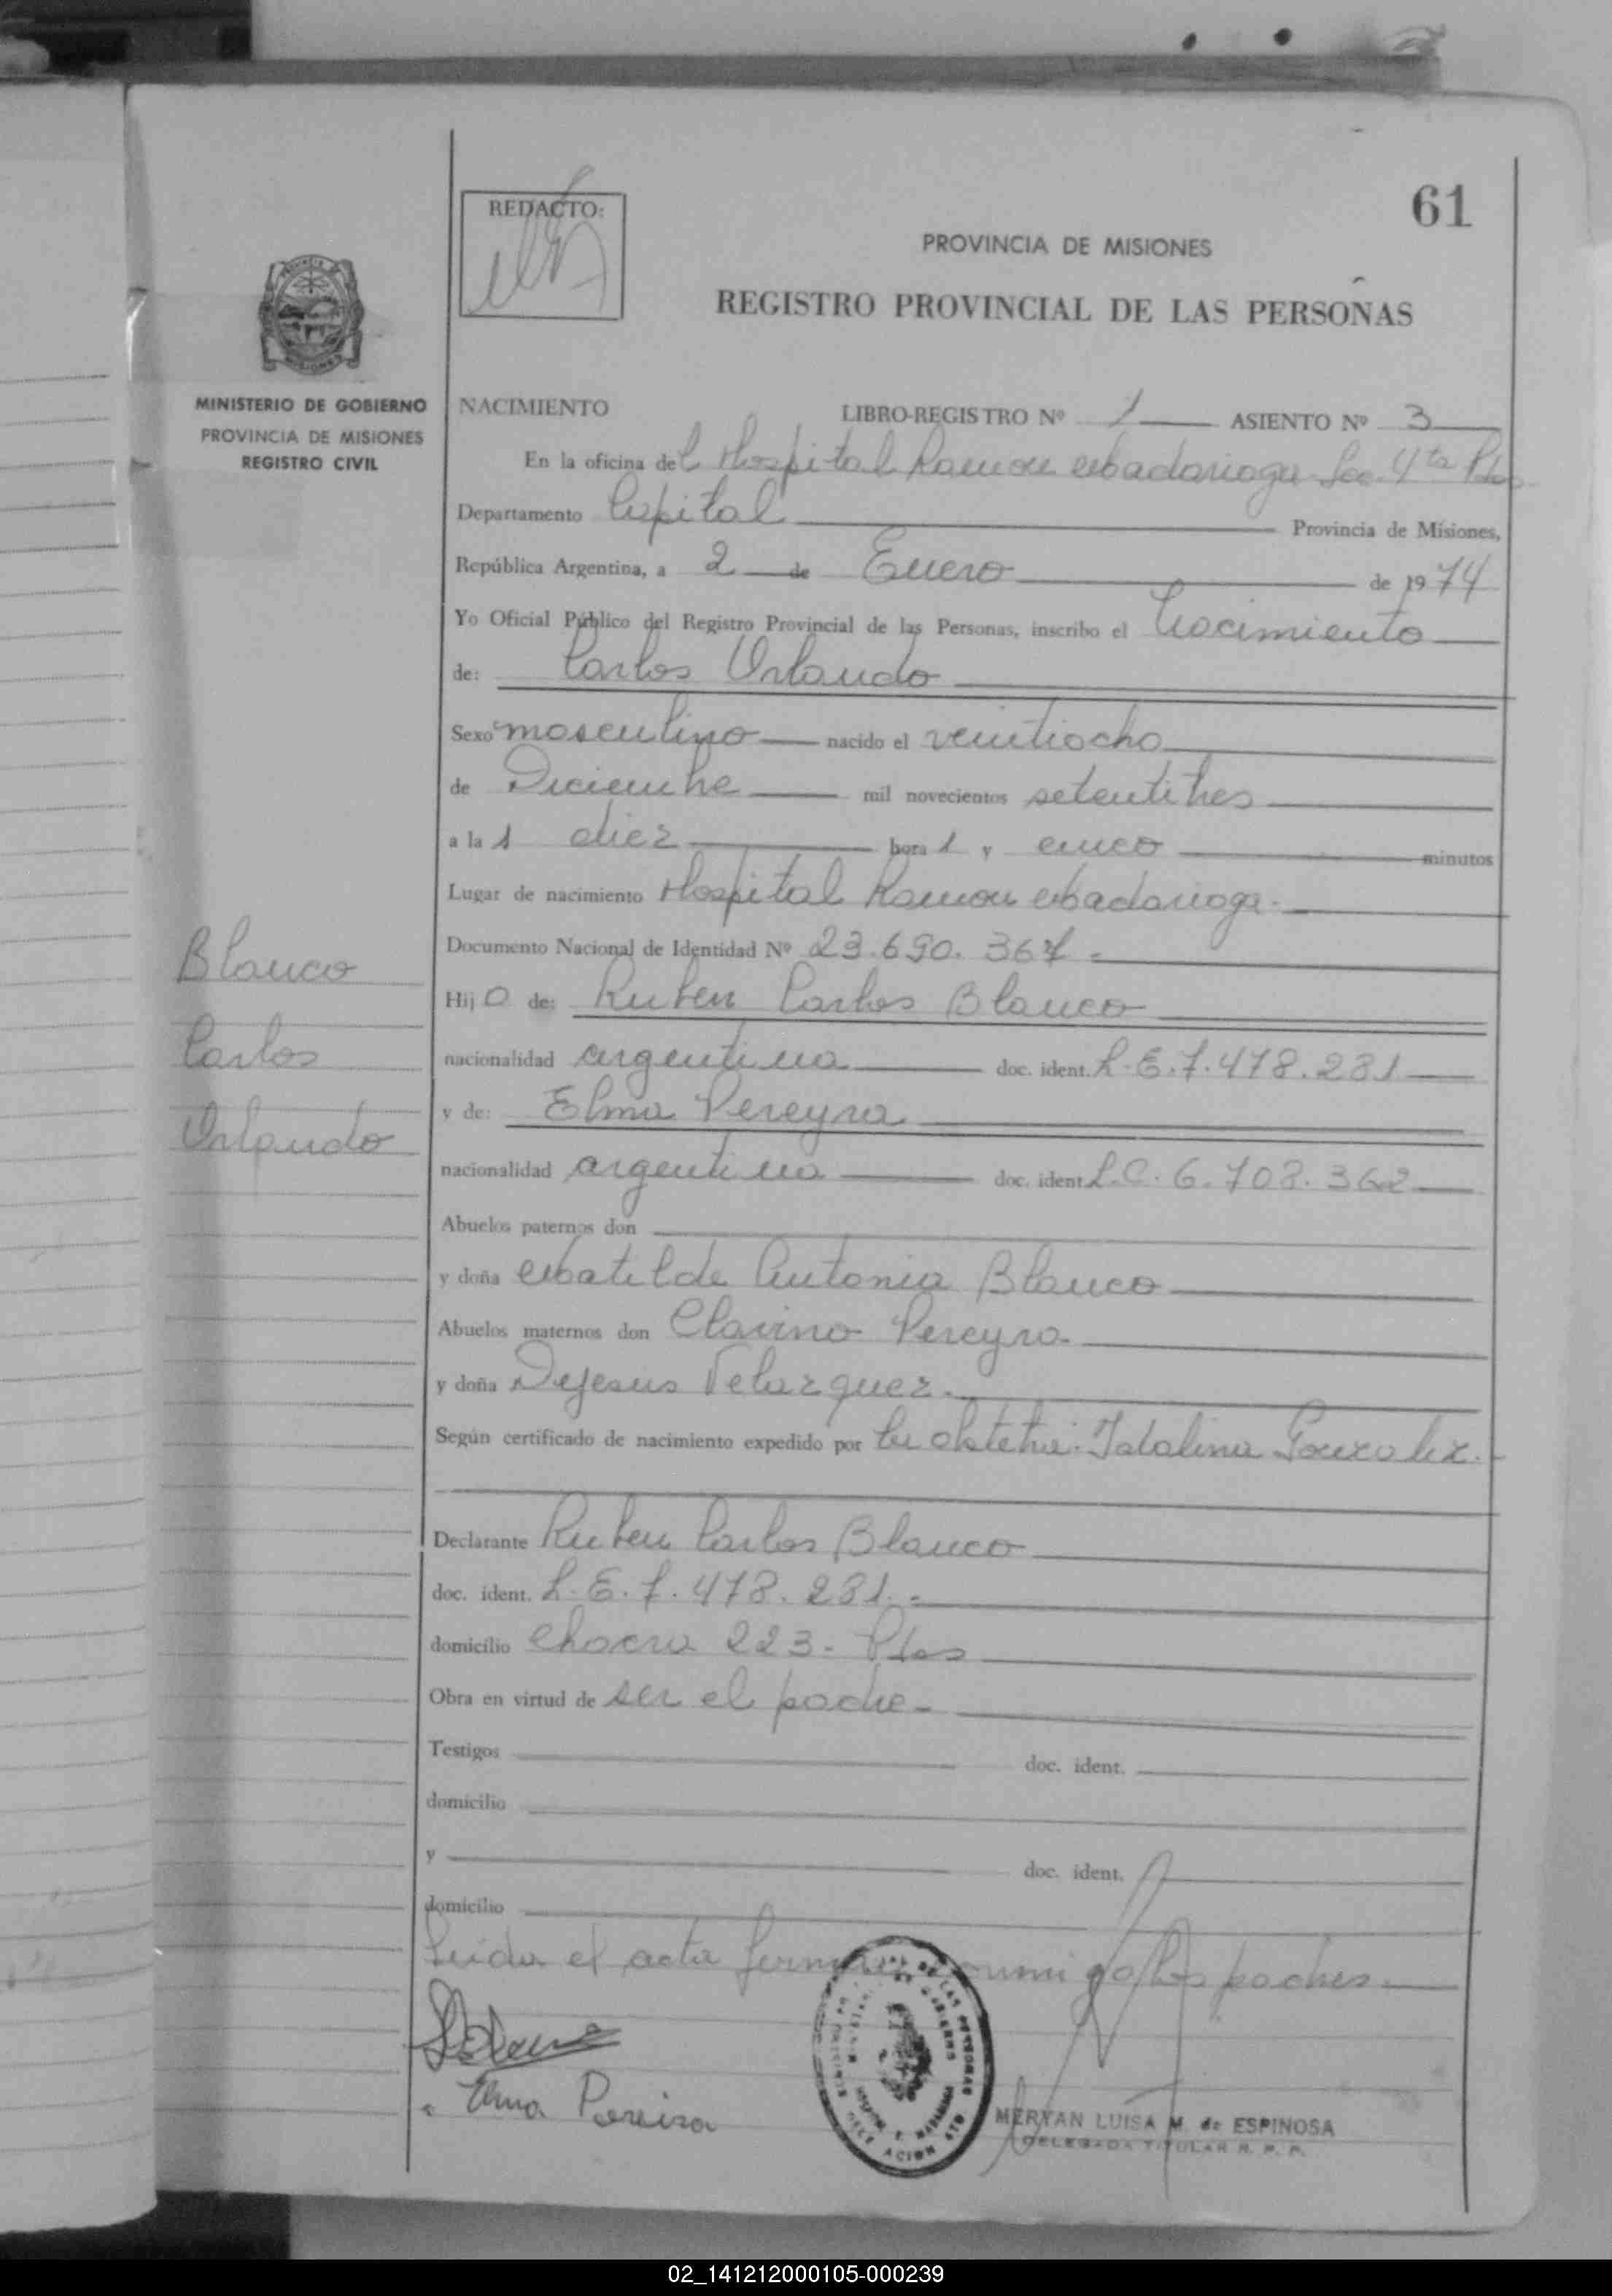 61
REDACTO:
PROVINCIA DE MISIONES
REGISTRO PROVINCIAL DE LAS PERSONAS
MINISTERIO DE GOBIERNO
PROVINCIA DE MISIONES
REGISTRO CIVIL
NACIMIENTO LIBRO-REGISTRO Nº 1 ASIENTO Nº 3
En la oficina del Hospital Ramon Madariaga Sec. 4ta Pdas
Departamento Capital Provincia de Misiones,
República Argentina, a 2 de Enero de 1974
Yo Oficial Público del Registro Provincial de las Personas, inscribo el Nacimiento
de: Carlos Orlando
Sexo masculino nacido el veintiocho
de Diciembre mil novecientos setentitres
a la s diez hora s y cinco minutos
Lugar de nacimiento Hospital Ramon Madariaga.
Documento Nacional de Identidad Nº 23.690.367.
Hijo de: Ruben Carlos Blanco
nacionalidad argentina doc. ident. L.E.7.478.231
y de: Elma Pereyra
nacionalidad argentina doc. ident. L.C. 6.708.362
Abuelos paternos don
y doña Matilde Antonia Blanco
Abuelos maternos don Clavino Pereyra
y doña Dejesus Velazquez.
Según certificado de nacimiento expedido por la obstetri: Gonzalez.
Declarante Ruben Carlos Blanco
doc. ident. L.E. 7.478.231.
domicilio Chacra 223- Pdas
Obra en virtud de ser el padre
Testigos doc. ident.
domicilio
y doc. ident.
domicilio
Leida el acta firman conmigo los padres.
Blanco
Carlos
Orlando
Elma Pereira
MERYAN LUISA M. de ESPINOSA
DELEGADA TITULAR R. P. P.
02_141212000105-000239